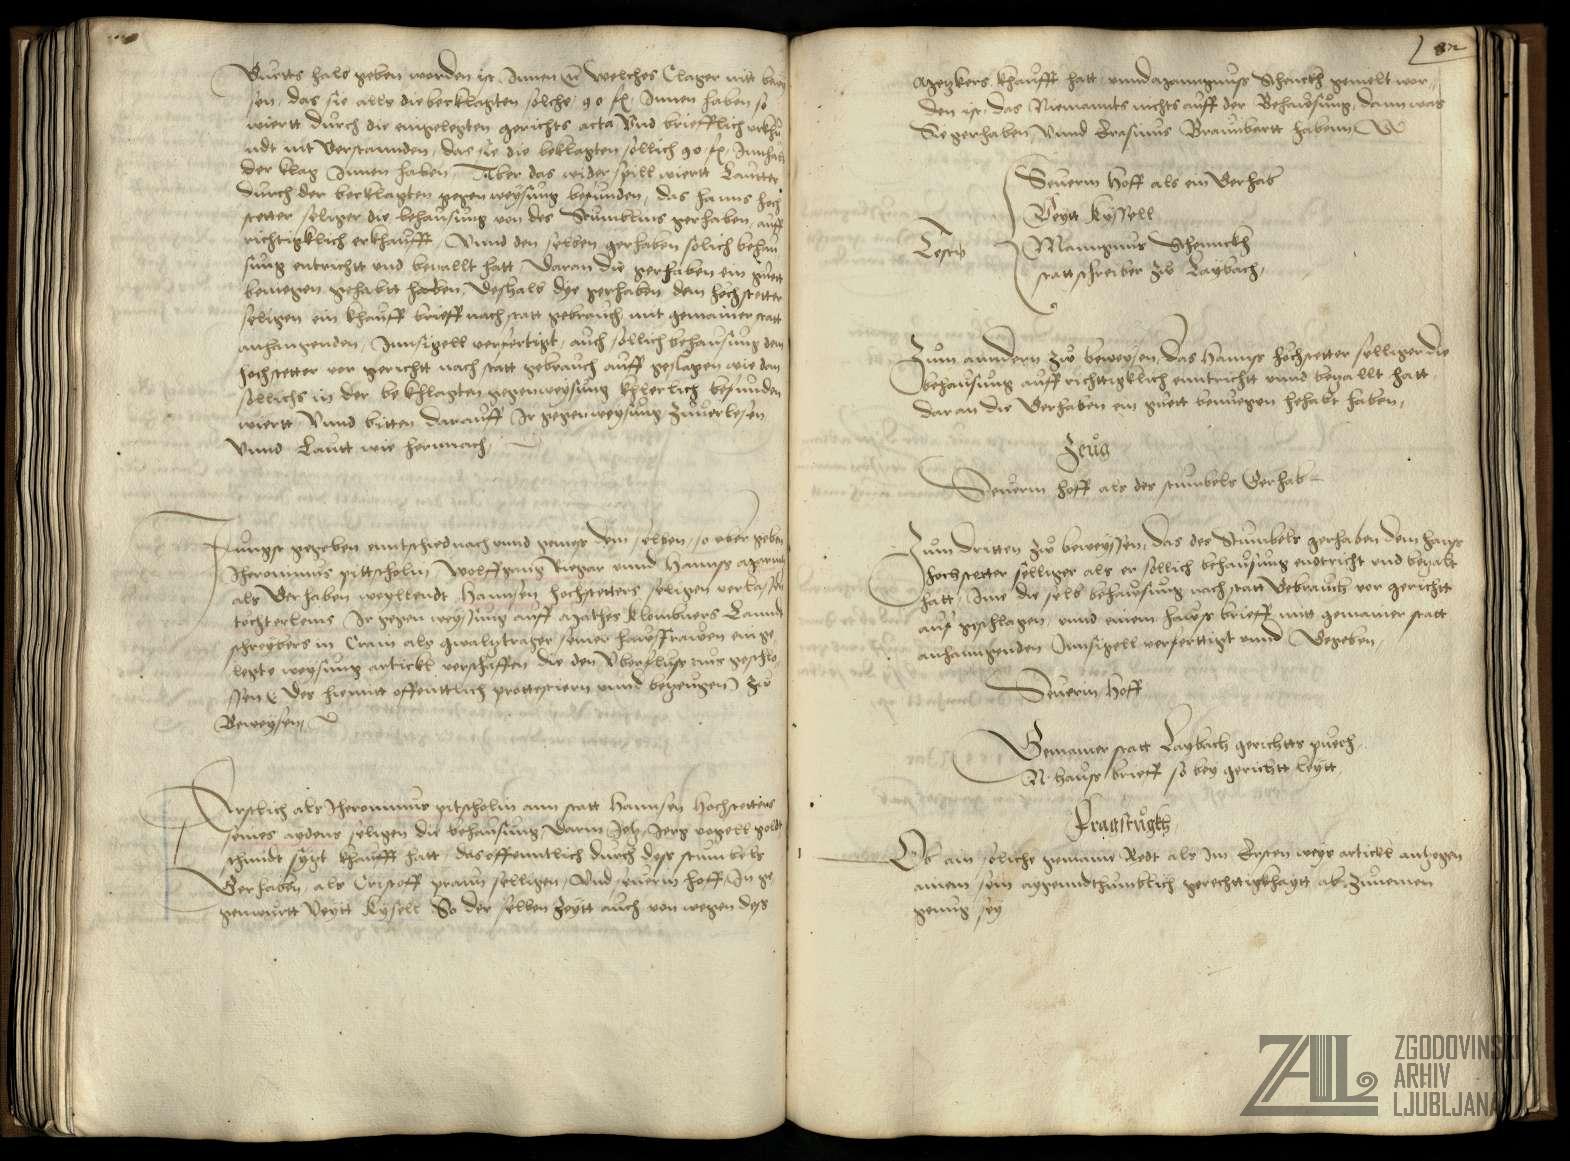 Guetts hals geben worden ist Innen etc welches Clager nitt bewei
sen, das sie alls die becklagten solche 90 fl Innen haben, so
wiertt durch die eingelegten gerichts acta vnd briefflich vrkhu
ndt nit verstannden, das sie die beklagten sollich 90 fl Innhalt
der klag Innen haben Aber das widerspill wiertt Lautter
durch der becklagten gegenweysung befunden, das hanns hoch
stetter seliger die behausung von des Stumbelins gerhaben auff
richtigklich erkhaufft, Vnnd den selben gerhaben solich behau
sung entricht vnd bezallt hatt daran die gerhaben ein guett
benuegen gehabtt haben, deshalb dye gerhaben dem hochstetter
seligen ein khauff brieff nach statt gebrauch mit gemainer statt
anhangenden Innsigell verfertigt, auch sollich behausung dem
hochstetter vor gerichtt nach statt gebrauch auff geslagen wie dan
sollichs in der bekhlagten gegenweysung khlerlich befunden
wiertt Vnnd bitten darauff Ir gegenweysung zuuerlesen
Vnnd Lautt wie hernnach,
Iungst gegeben enntschied nach vnnd gemess dem selben, so vber geben
Iheronimus pittschelin Wolffganng Rieger vnnd Hannss
als Gerhaben weyllendt Hannsen Hochstetters seligen verlassen
tochterleins Ir gegen weysung auff Mathes Klombners Lanndt
schreybers in Crain als gwaltrager seiner hausfrawen einge
legte weysung artickl verschaffen die den Vberfluss aus geschlo
ssen Des hiemitt offenttlich prottestiern vnnd bezeugen Zw
Beweysen,
Erstlich als Iheronimus pitschelin ann statt Hannsen Hochstetters
seines aydens seligen die behausung darin Jetz Jerg vogell goldt
schmidt sytzt khaufft hatt, das offenntlich durch dess stumbels
Gerhaben, als Cristoff praun selligen, Vnd seuerin hoff, In ge
genwurtt Veytt Kysell So der selben Zeytt auch von wegen dess
82
khaufft hatt vnnd Schenickh gemelt wor
den ist, das Niemannts nichts auff der Behausung, dann was
Sie gerhaben, Vnnd Erasimus Braunbartt habenn
Testes
Seuerin Hoff als ein Gerhab
Veytt Kyssell
Mangnus Schenickh
statt schreiber zw Laybach,
Zum anndern Zw beweysen, das Hannss hochstetter selliger die
behausung auffrichttigklich enntrichtt vnnd bezallt hatt,
daran die Gerhaben ein guett benuegen gehabt haben,
Zeug
Seuerin hoff als des stumbels Gerhab
Zum dritten Zw beweyssen, das des Stumbels gerhaben dem hanss
hochstetter selliger als er sollich behausung endtricht vnd bezalt
hatt, Ime die selb behausung nach statt Gebrauch vor gerichtt
auf geschlagen, vnnd einen hauss brieff mitt gemainer statt
anhanngenden Innsigell verferttigt vnnd Gegeben,
Seuerin Hoff
Gemainer statt Laybach gerichtts puech,
N hauss brieff so bey gerichtt leytt,
Fragstugkh,
Ob ain soliche gemaine Redt als Im Ersten weys artickl anzogen
ainem sein aygenndthumblich gerechttigkhaytt ab zunemen
genug sey
ZAL
ZGODOVINSKI
ARHIV
LJUBLJANA